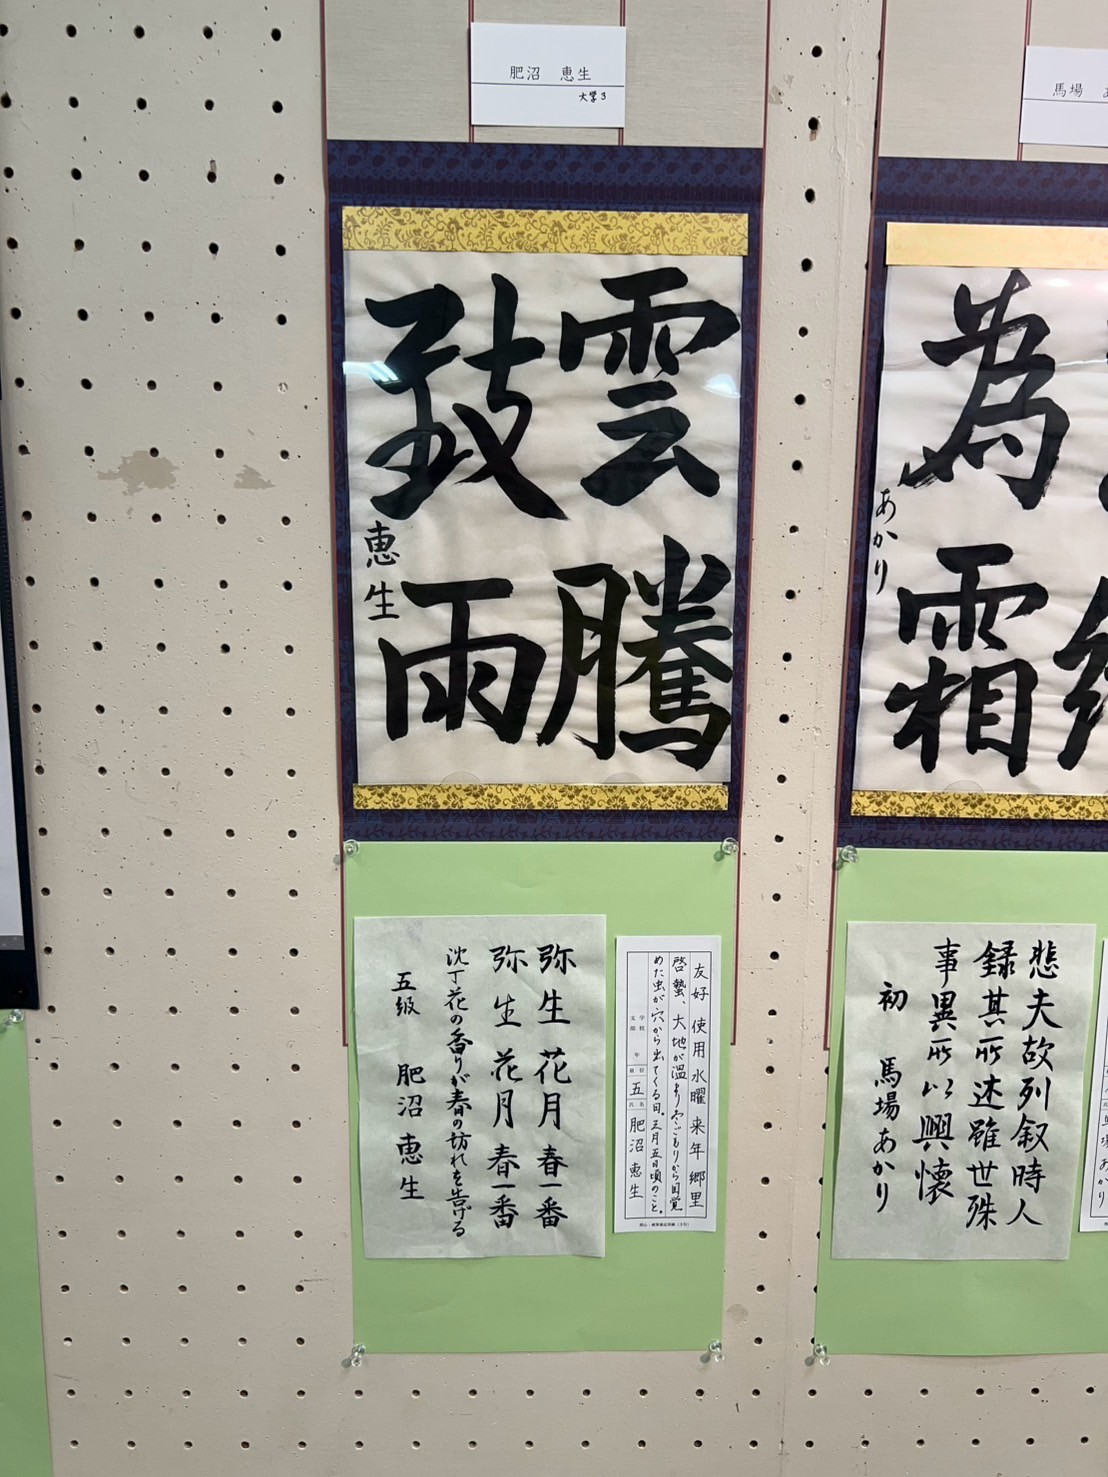 肥沼 恵生
大学3
雲騰
致雨
恵生
弥生 花月 春一番
弥生 花月 春一番
沈丁花の香りが春の訪れを告げる
五級 肥沼 恵生
友好 使用 水曜 来年 郷里
啓蟄、大地が温まり冬ごもりから目覚
めた虫が穴から出てくる日。三月五日頃のこと。
学校
支部
年
級位
五
氏名
肥沼 恵生
馬場
為霜
あかり
悲夫故列叙時人
録其所述雖世殊
事異所以興懐
初 馬場あかり